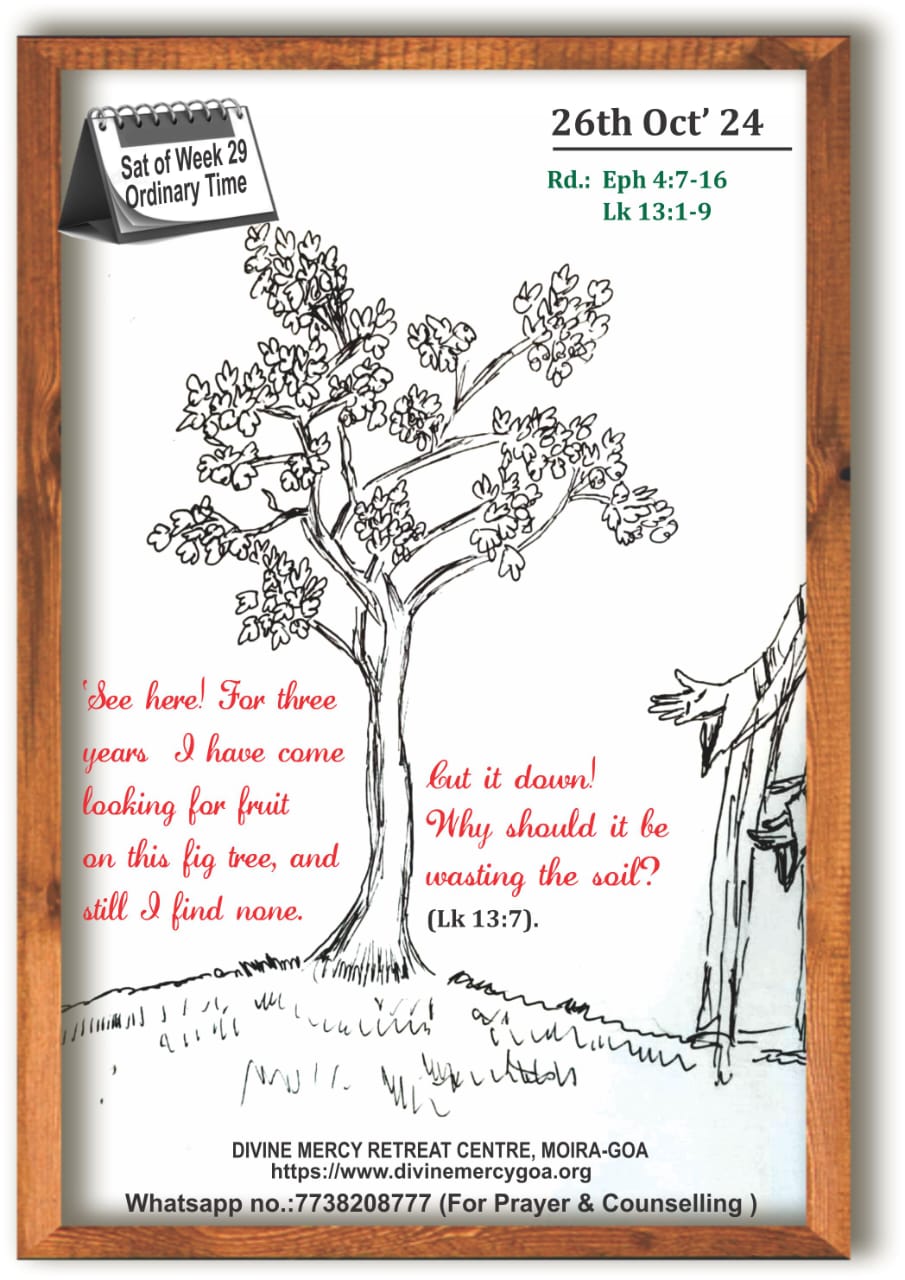 Sat of Week 29
Ordinary Time
26th Oct’ 24
Rd.: Eph 4:7-16
Lk 13:1-9
‘See here! For three
years I have come
looking for fruit
on this fig tree, and
still I find none.
Cut it down!
Why should it be
wasting the soil?
(Lk 13:7).
DIVINE MERCY RETREAT CENTRE, MOIRA-GOA
https://www.divinemercygoa.org
Whatsapp no.:7738208777 (For Prayer & Counselling )